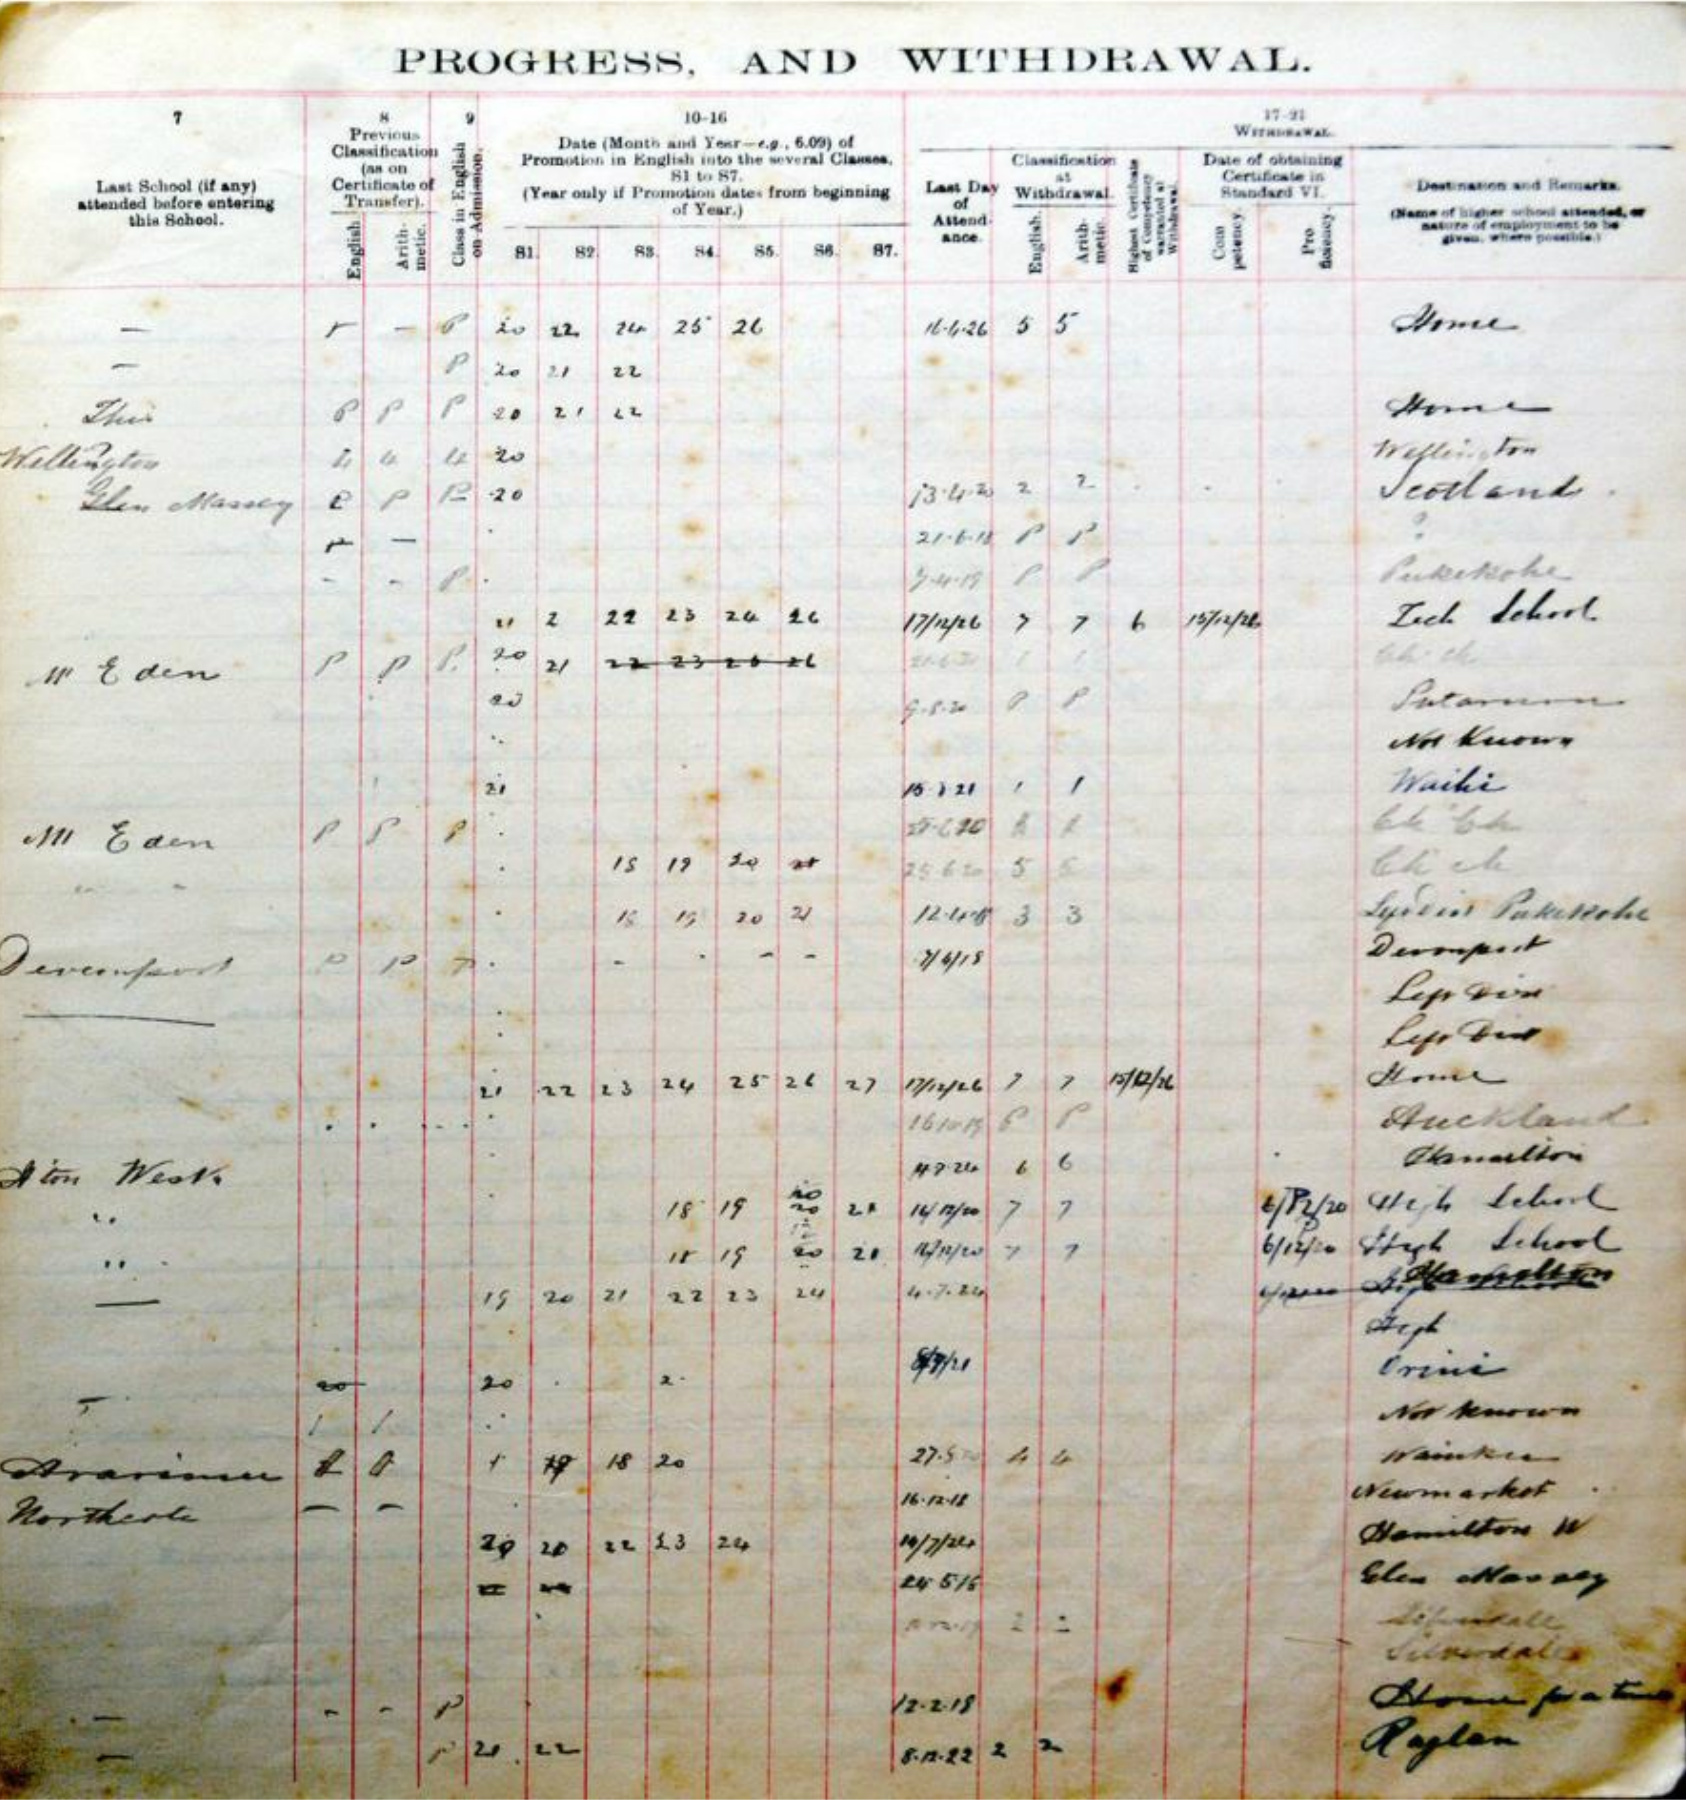 PROGRESS, AND WITHDRAWAL.
7
Last School (if any) attended before entering this School.
8
Previous Classification (as on Certificate of Transfer).
English.
Arithmetic.
9
Class in English on Admission.
10-16
Date (Month and Year—e.g., 6.09) of Promotion in English into the several Classes, S1 to S7.
(Year only if Promotion dates from beginning of Year.)
S1. S2. S3. S4. S5. S6. S7.
17-21
WITHDRAWAL.
Last Day of Attendance.
Classification at Withdrawal.
English.
Arithmetic.
Highest Certificate of Competency warranted at Withdrawal.
Date of obtaining Certificate in Standard VI.
Competency.
Proficiency.
Destination and Remarks.
(Name of higher school attended, or nature of employment to be given, where possible.)
— – P 20 22 24 25 26 16.4.26 5 5 Home
— P 20 21 22
This P P P 20 21 22 Home
Wellington 4 4 4 20 Wellington
Glen Massey P P 20 13.4.20 2 2 Scotland
— 21.6.18 P P ?
- - P 7.4.19 P P Pukekohe
21 2 22 23 24 26 17/12/26 7 7 6 15/12/26 Tech School
Mt Eden P P P. 20 21 22 23 25 26 Ch ch
20 9.8.20 P P
Not Known
21 15.3.21 1 1 Waihi
Mt Eden P P P Ch Ch
" " 18 19 20 25.6.20 5 5 Ch ch
18 19 20 21 3 3 Pukekohe
Devonport P P 7/6/18 Devonport
Left Dist
Left Dist
21 22 23 24 25 26 27 17/12/26 7 7 15/12/26 Home
16.10.19 P P Auckland
H'ton West. 4.7.24 6 6 Hamilton
" 18 19 20 20 21 16/12/20 7 7 6/12/20 High School
" 18 19 20 21 16/12/20 7 7 6/12/20 High School
— 19 20 21 22 23 24 4.7.24 Hamilton
High
8/9/21 Orini
— 20 20 2.
1 1 Not known
Ararimu 1 19 18 20 27.5 4 4
Northcote — — 16.12.18 Newmarket
20 20 22 23 24 14/7/24 Hamilton W
24 5 18 Glen Massey
2 2 Silverdale
Silverdale
— - - P 12.2.18 Home for a time
— P 21 22 8.12.22 2 2 Raglan